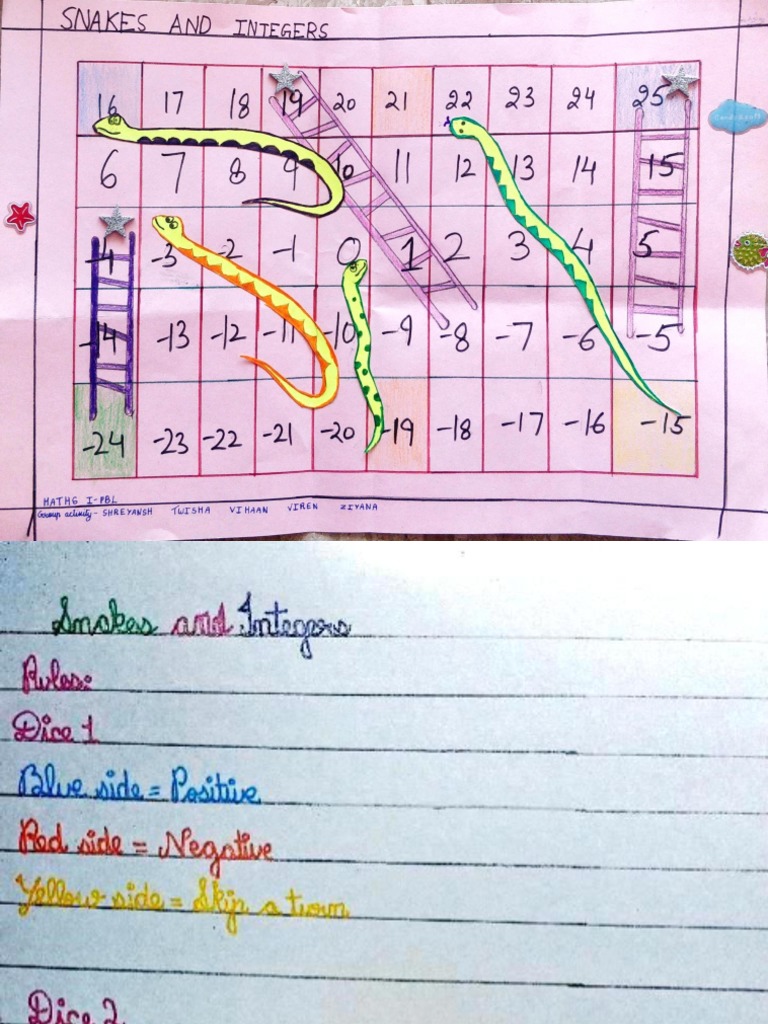 SNAKES AND INTEGERS
16 17 18 19 20 21 22 23 24 25
6 7 8 9 10 11 12 13 14 15
-4 -3 -2 -1 0 1 2 3 4 5
-14 -13 -12 -11 -10 -9 -8 -7 -6 -5
-24 -23 -22 -21 -20 -19 -18 -17 -16 -15
MATHS I-PBL
Group activity - SHREYANSH TWISHA VIHAAN VIREN ZIYANA
Snakes and Integers
Rules:
Dice 1
Blue side = Positive
Red side = Negative
Yellow side = Skip a turn
Dice 2